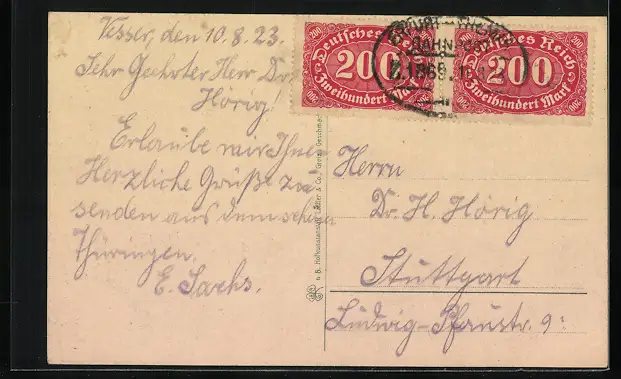 Vesser, den 10.8.23.
Sehr Geehrter Herr Dr.
Hörig!
Erlaube mir Ihnen
Herzliche Grüße zu
senden aus dem schönen
Thüringen.
E. Sachs.
200 200
Deutsches Reich
200
Zweihundert Mark
200 200
Deutsches Reich
200
Zweihundert Mark
BAHNPOST
Herrn
Dr. H. Hörig
Stuttgart
Ludwig-Pfaustr. 9: